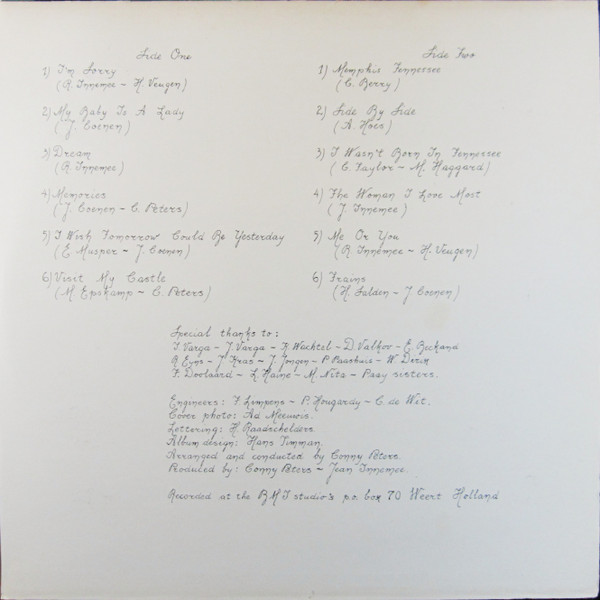 Side One
1) I'm Sorry
(R. Innemee ~ H. Veugen)
2) My Baby Is A Lady
(J. Coenen)
3) Dream
(R. Innemee)
4) Memories
(J. Coenen - C. Peters)
5) I Wish Tomorrow Could Be Yesterday
(E Musper ~ J. Coenen)
6) Visit My Castle
(M. Epskamp ~ C. Peters)
Side Two
1) Memphis Tennersee
(C. Berry)
2) Side By Side
(A. Hoes)
3) I Wasn't Born In Tennersee
(C. Taylor - M. Haggard)
4) The Woman I Love Most
(J. Innemee)
5) Me Or You
(R. Innemee ~ H. Veugen)
6) Trains
(H. Salden - J. Coenen)
Special thanks to:
I. Varga - J. Varga - R. Wachtel - D. Valkov - E. Beckand
R. Eyns - J. Kras - J. Jongen - P. Paashuis - W. Derix
F. Doolaard - L. Haine - M. Nita - Peay sisters.
Engineers: F Limpens ~ P. Hougardy ~ C. de Wit.
Cover photo: Ad Meeuwis.
Lettering: H. Raadschelders
Album design: Hans Timman.
Arranged and conducted by Conny Peters.
Produced by: Conny Peters - Jean Innemee.
Recorded at the B.M.I studio's p.o. box 70 Weert Holland